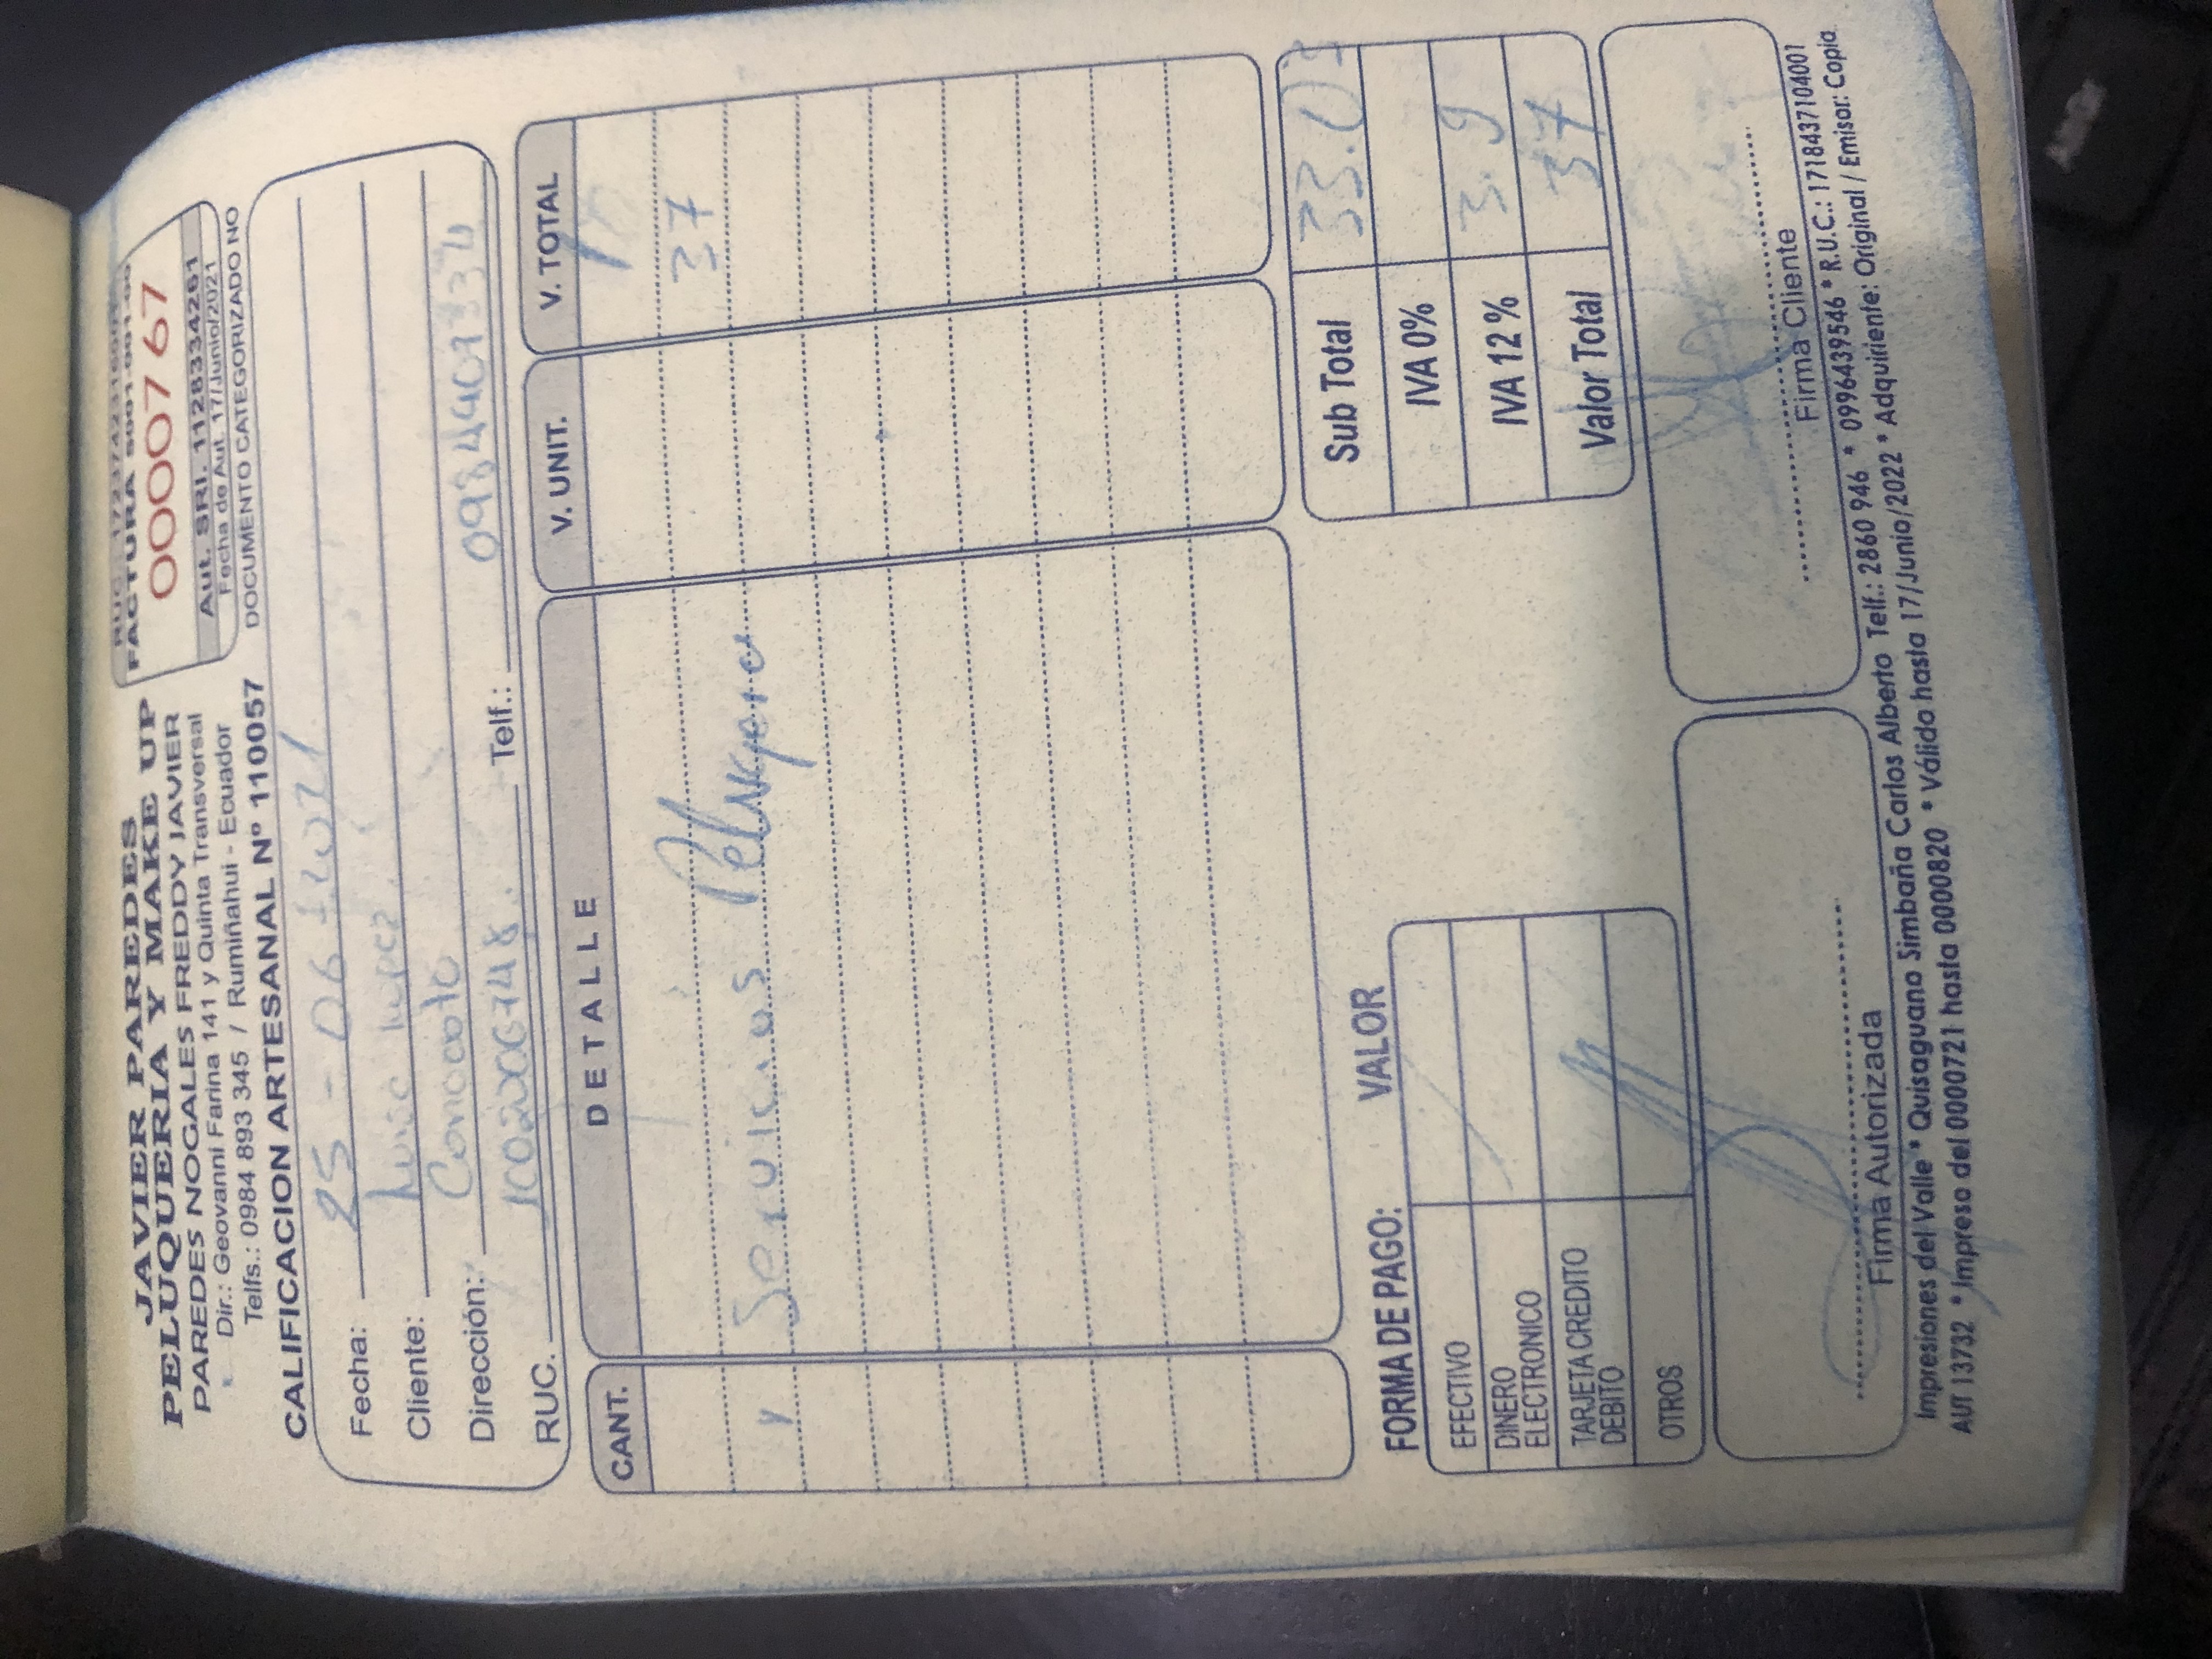 JAVIER PAREDES
PELUQUERIA Y MAKE UP
PAREDES NOGALES FREDDY JAVIER
Dir.: Geovanni Farina 141 y Quinta Transversal
Telfs.: 0984 893 345 / Rumiñahui - Ecuador
CALIFICACION ARTESANAL Nº 110057
RUC.: 1723742316001
FACTURA S001-001-00
0000767
Aut. SRI. 1128334261
Fecha de Aut. 17/Junio/2021
DOCUMENTO CATEGORIZADO NO
Fecha: 25 - 06 - 2021
Cliente: Lopez
Dirección: Conocoto
RUC. 1002006748 Telf.:
CANT. DETALLE V. UNIT. V. TOTAL
37
Servicios
Sub Total 33.03
IVA 0%
IVA 12 % 3.9
Valor Total 37
FORMA DE PAGO: VALOR
EFECTIVO
DINERO ELECTRONICO
TARJETA CREDITO DEBITO
OTROS
Firma Autorizada
Firma Cliente
Impresiones del Valle * Quisaguano Simbaña Carlos Alberto Telf.: 2860 946 * 0996439546 * R.U.C.: 1718437104001
AUT 13732 * Impreso del 0000721 hasta 0000820 * Válido hasta 17/Junio/2022 * Adquiriente: Original / Emisor: Copia